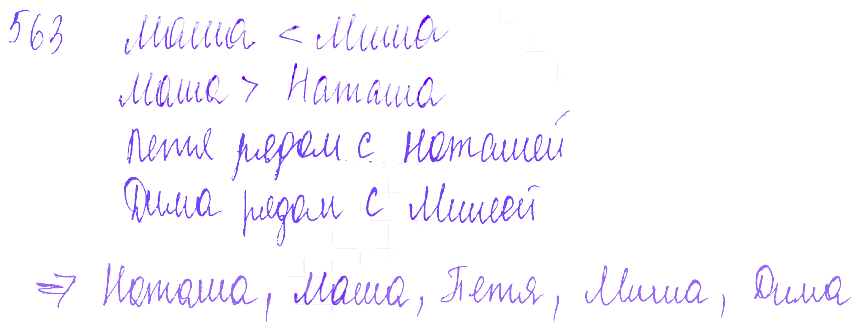 563 Маша < Миша
Маша > Наташа
Петя рядом с Наташей
Дима рядом с Мишей
⇒ Наташа, Маша, Петя, Миша, Дима